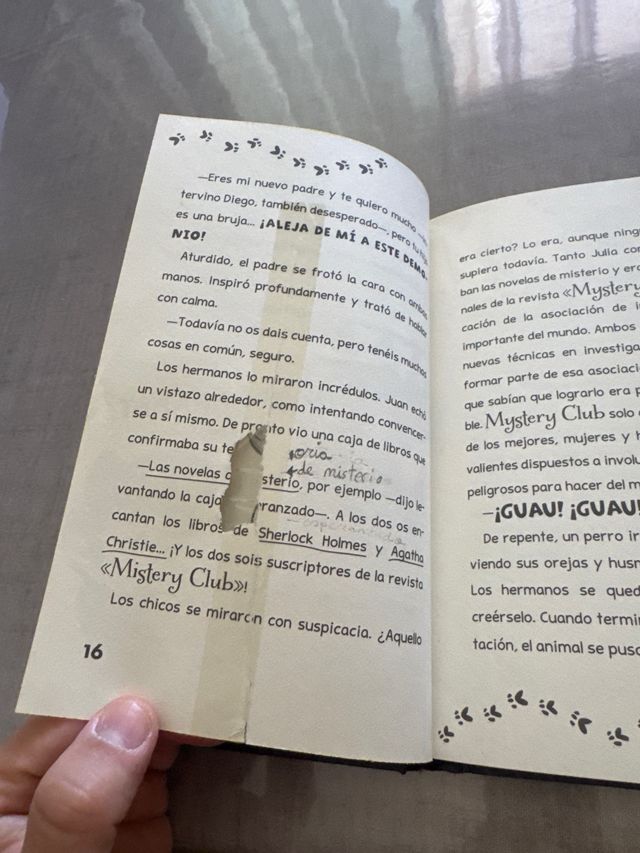 —Eres mi nuevo padre y te quiero mucho
tervino Diego, también desesperado—, pero tu
es una bruja... ¡ALEJA DE MÍ A ESTE DEMO-
NIO!
Aturdido, el padre se frotó la cara con ambas
manos. Inspiró profundamente y trató de hablar
con calma.
—Todavía no os dais cuenta, pero tenéis muchas
cosas en común, seguro.
Los hermanos lo miraron incrédulos. Juan echó
un vistazo alrededor, como intentando convencer-
se a sí mismo. De pronto vio una caja de libros que
confirmaba su te oria
de misterio
—Las novelas d sterio, por ejemplo —dijo le-
vantando la caja eranzado—. A los dos os en-
cantan los libros de Sherlock Holmes y Agatha
Christie... ¡Y los dos sois suscriptores de la revista
«Mistery Club»!
Los chicos se miraron con suspicacia. ¿Aquello
16
era cierto? Lo era, aunque ning
supiera todavía. Tanto Julia con
ban las novelas de misterio y era
nales de la revista «Mystery
cación de la asociación de i
importante del mundo. Ambos
nuevas técnicas en investiga
formar parte de esa asociaci
que sabían que lograrlo era p
ble. Mystery Club solo
de los mejores, mujeres y h
valientes dispuestos a involu
peligrosos para hacer del m
—¡GUAU! ¡GUAU!
De repente, un perro ir
viendo sus orejas y husm
Los hermanos se qued
creérselo. Cuando termi
tación, el animal se puso